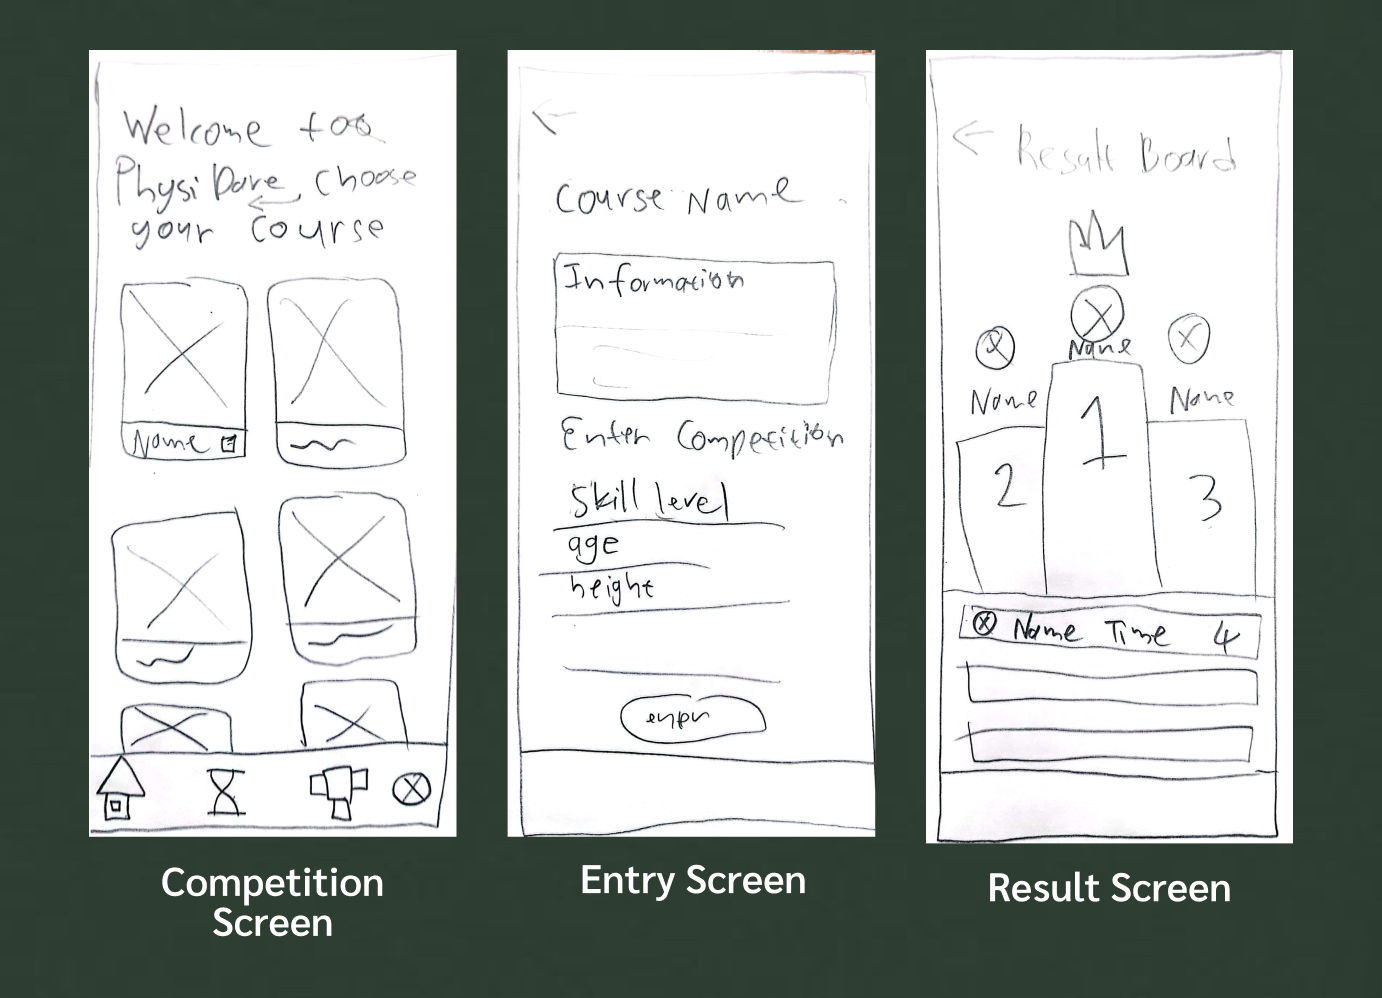 Welcome too
PhysiDare, Choose
your Course
Name
Competition
Screen
Course Name
Information
Enter Competition
Skill level
age
height
Entry Screen
Result Board
Name
Name
Name
1
2
3
Name Time 4
Result Screen